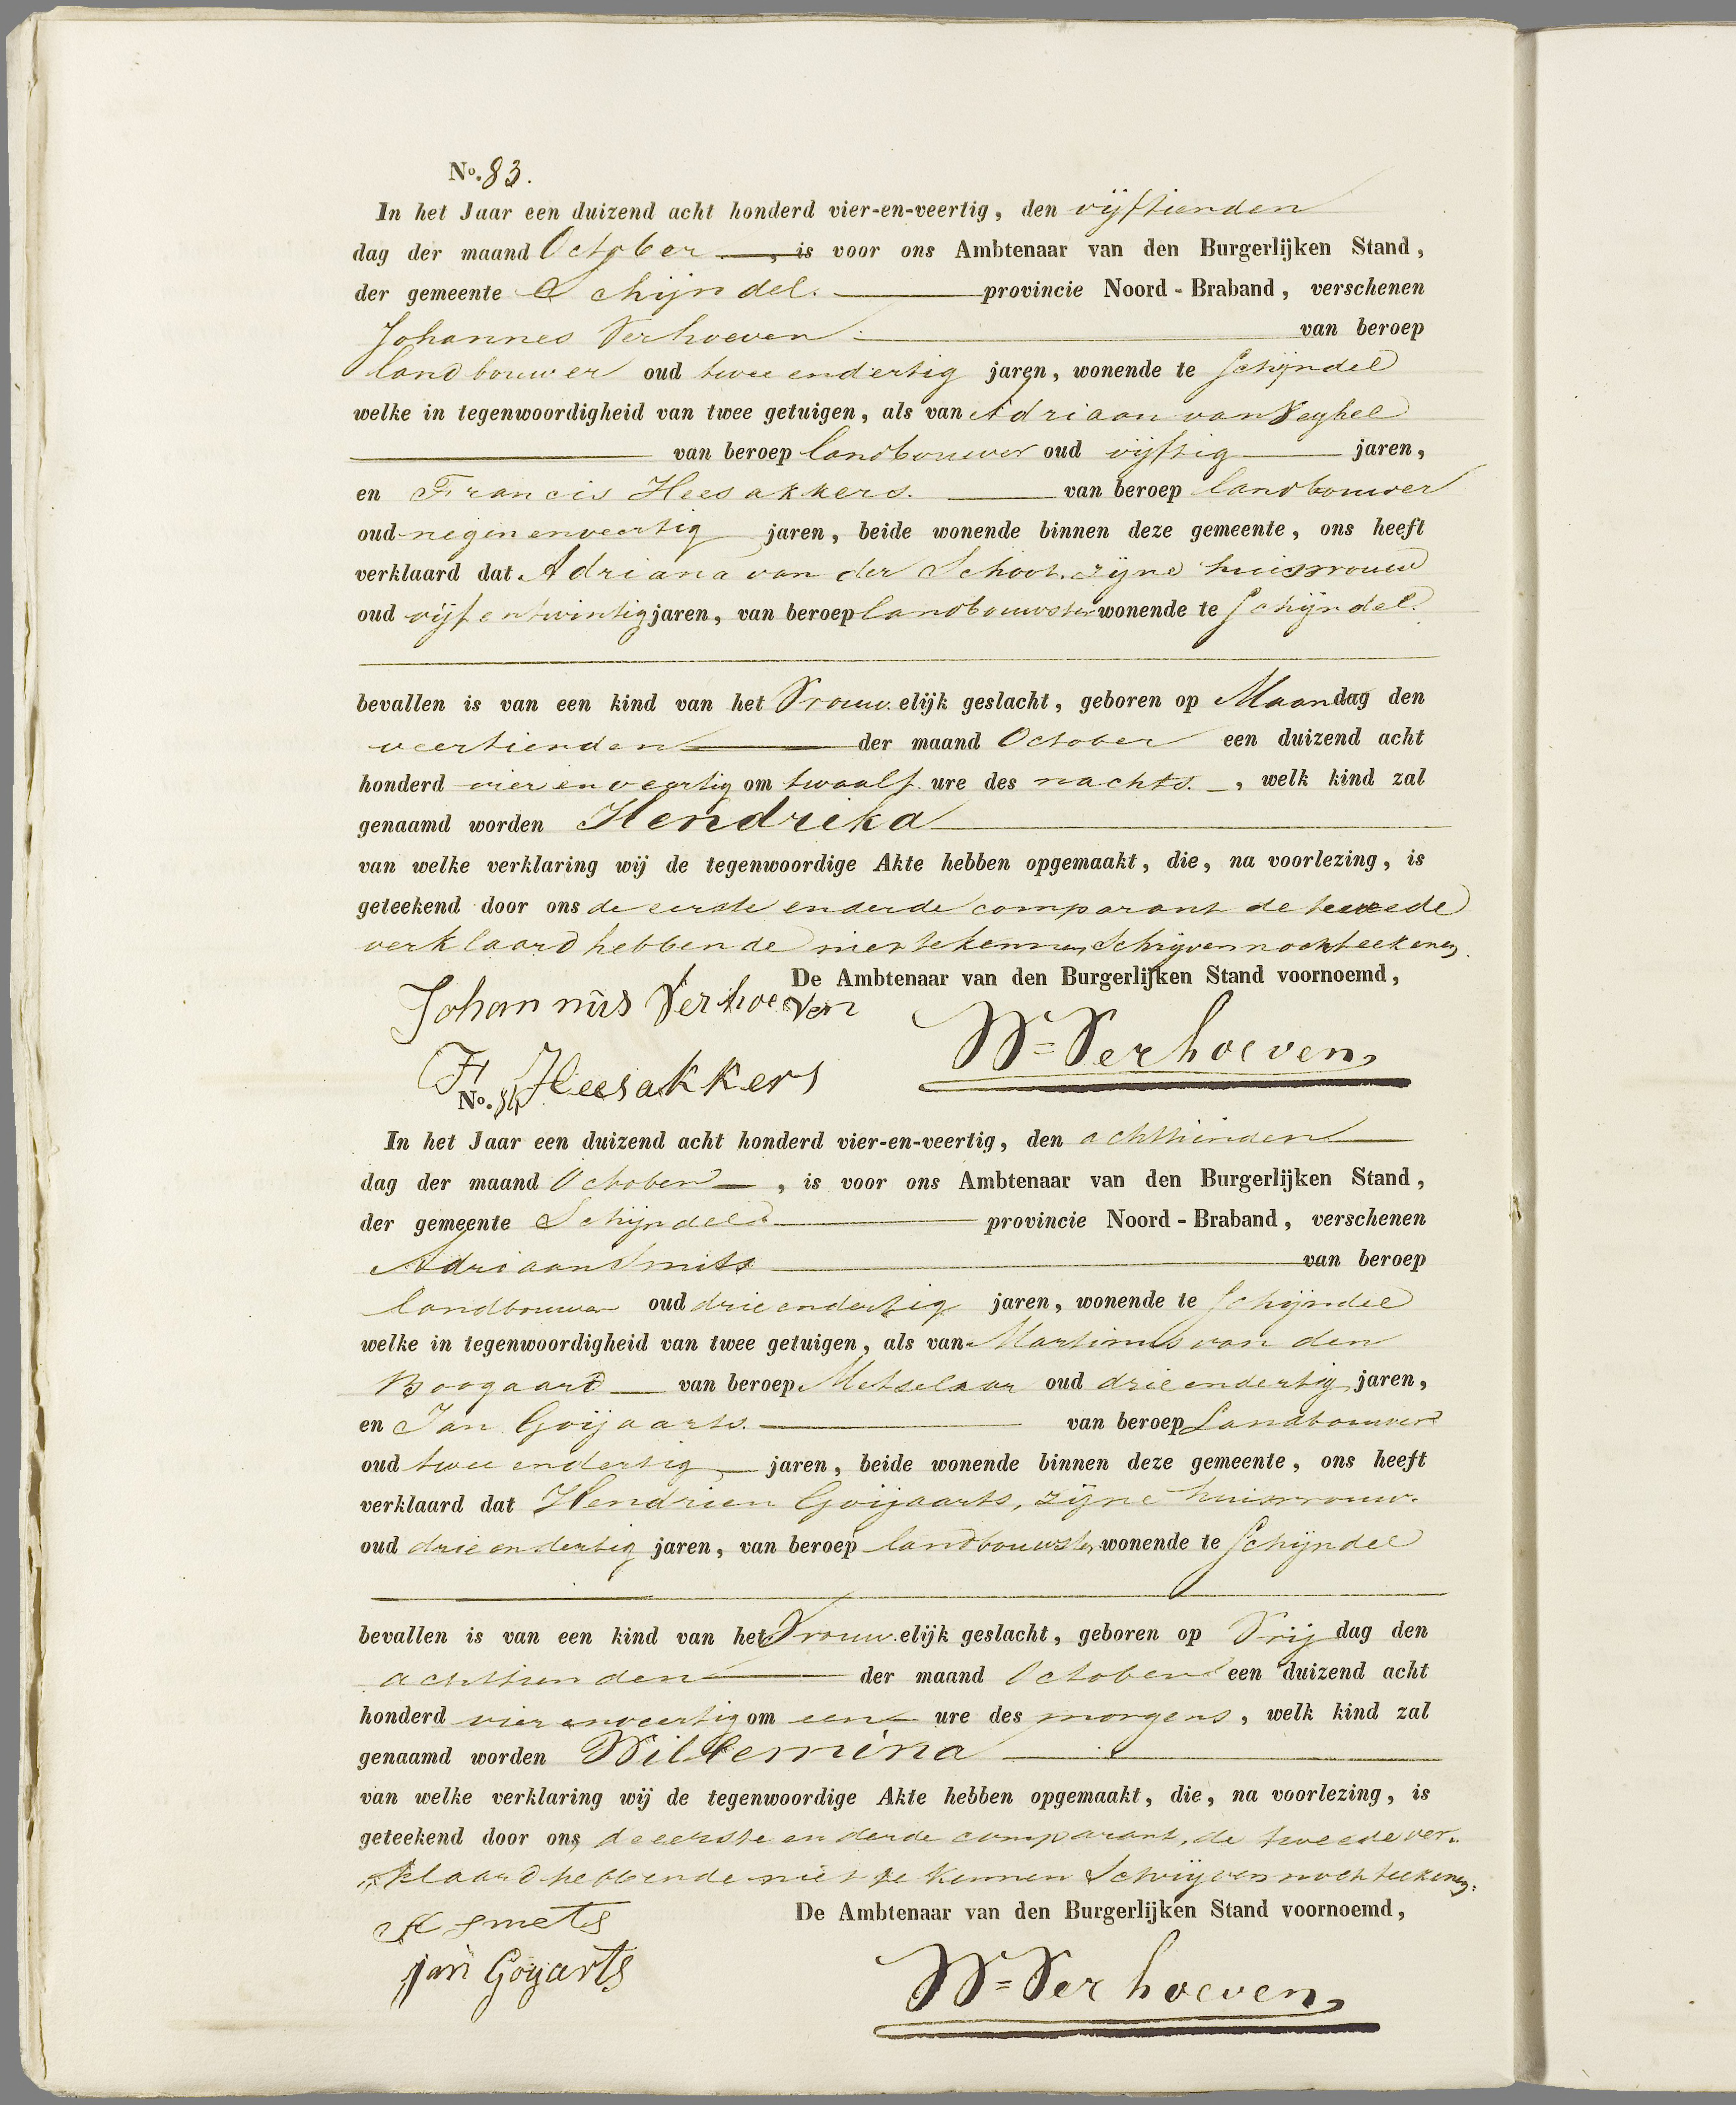 No. 83.
In het Jaar een duizend acht honderd vier-en-veertig, den vijftienden
dag der maand October, is voor ons Ambtenaar van den Burgerlijken Stand,
der gemeente Schijndel. provincie Noord-Braband, verschenen
Johannes Verhoeven van beroep
landbouwer oud twee endertig jaren, wonende te Schijndel
welke in tegenwoordigheid van twee getuigen, als van Adriaan van Veghel
van beroep landbouwer oud vijftig jaren,
en Francis Heesakkers. van beroep landbouwer
oud negen enveertig jaren, beide wonende binnen deze gemeente, ons heeft
verklaard dat Adriana van der Schoot. zijne huisvrouw
oud vijf entwintig jaren, van beroep landbouwster wonende te Schijndel.
bevallen is van een kind van het Vrouw.elijk geslacht, geboren op Maandag den
veertienden der maand October een duizend acht
honderd vier en veertig om twaalf ure des nachts., welk kind zal
genaamd worden Hendrika
van welke verklaring wij de tegenwoordige Akte hebben opgemaakt, die, na voorlezing, is
geteekend door ons de eerste en derde comparant de tweede
verklaard hebbende niet te kennen Schrijven noch teekenen.
De Ambtenaar van den Burgerlijken Stand voornoemd,
Johannis Verhoeven
W= Verhoeven
F Heesakkers
No. 84
In het Jaar een duizend acht honderd vier-en-veertig, den achttienden
dag der maand October, is voor ons Ambtenaar van den Burgerlijken Stand,
der gemeente Schijndel provincie Noord-Braband, verschenen
Adriaan Smits van beroep
landbouwer oud drie endertig jaren, wonende te Schijndel
welke in tegenwoordigheid van twee getuigen, als van Martinus van den
Boogaard van beroep Metselaar oud drie endertig jaren,
en Jan Goijaarts. van beroep Landbouwer
oud twee endertig jaren, beide wonende binnen deze gemeente, ons heeft
verklaard dat Hendrien Goijaarts, zijne huisvrouw.
oud drie en dertig jaren, van beroep landbouwster wonende te Schijndel
bevallen is van een kind van het Vrouw.elijk geslacht, geboren op Vrijdag den
achttienden der maand October een duizend acht
honderd vier enveertig om een ure des morgens, welk kind zal
genaamd worden Willemina
van welke verklaring wij de tegenwoordige Akte hebben opgemaakt, die, na voorlezing, is
geteekend door ons, de eerste en derde comparant, de tweede ver„
„klaard hebbende niet te kennen Schrijven noch teekenen.
De Ambtenaar van den Burgerlijken Stand voornoemd,
A smets
jan Goyarts
W= Verhoeven